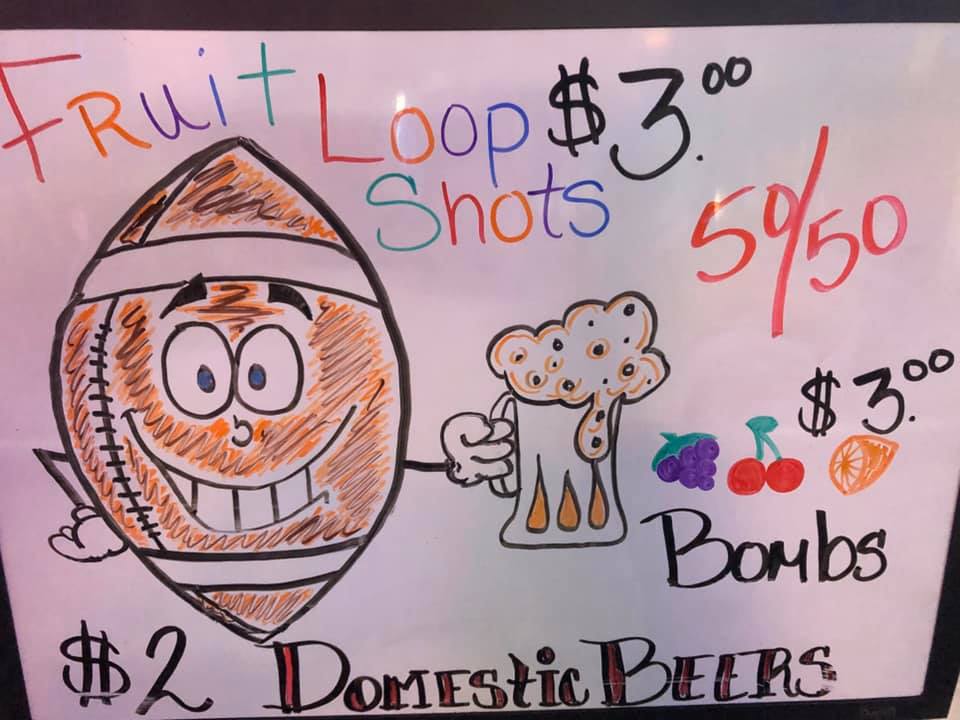 Fruit Loop $3.00
Shots
50/50
$3.00
Bombs
$2 Domestic Beers